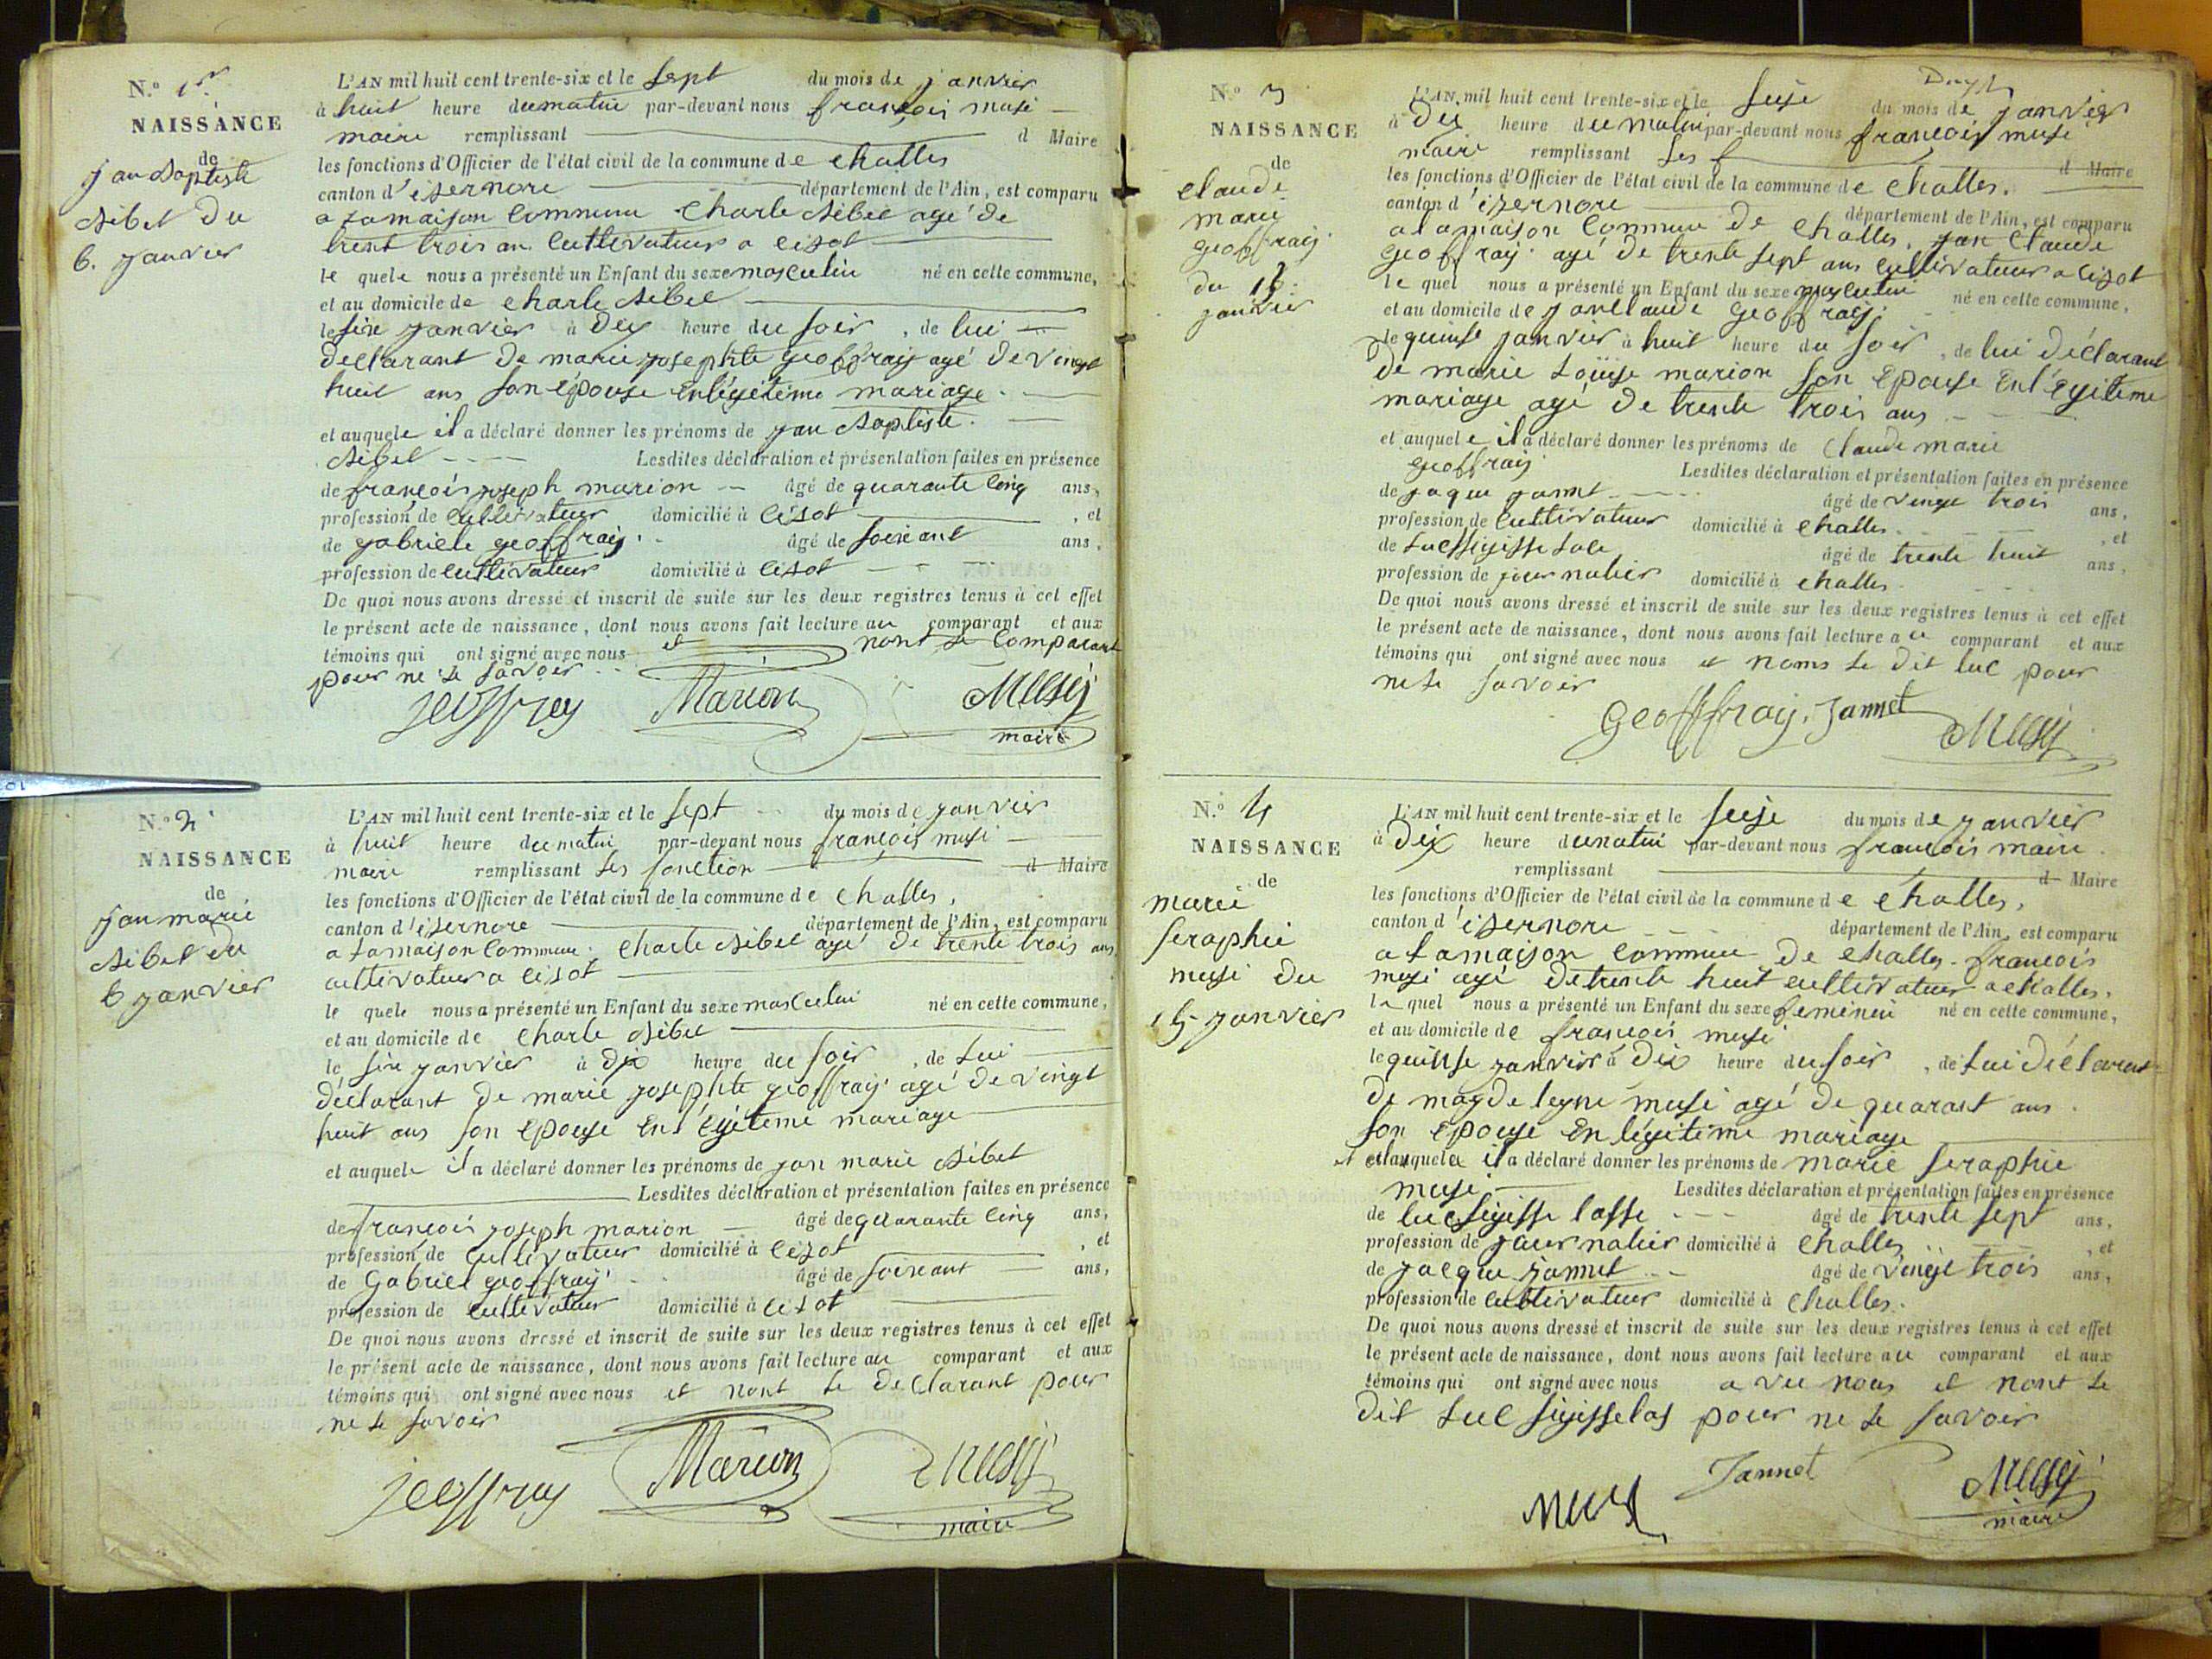 N.º 1er
NAISSANCE
de
jan Baptiste
Sibet du
6. janvier
L'AN mil huit cent trente-six et le sept du mois de janvier
à huit heure du matin par-devant nous françois musi
maire remplissant d Maire
les fonctions d'Officier de l'état civil de la commune de challes
canton d'izernore département de l'Ain, est comparu
a la maison commune charle sibet agé de
trent trois an cultivateur a cizot
le quele nous a présenté un Enfant du sexe masculin né en cette commune,
et au domicile de charle sibet
le sixe janvier à dix heure du soir, de lui
declarant de marie josephte geoffray agé de vingt
huit ans son épouse en légitime mariage.
et auquele il a déclaré donner les prénoms de jan Baptiste.
sibet Lesdites déclaration et présentation faites en présence
de françois joseph marion âgé de quarante cinq ans,
profession de cultivateur domicilié à cizot, et
de gabriele geoffray. âgé de soixant ans,
profession de cultivateur domicilié à cizot
De quoi nous avons dressé et inscrit de suite sur les deux registres tenus à cet effet
le présent acte de naissance, dont nous avons fait lecture au comparant et aux
témoins qui ont signé avec nous et nont le comparant
pour ne le savoir
jeoffrey Marion Musy
maire
N.º 2
NAISSANCE
de
jan marie
sibet du
6 janvier
L'AN mil huit cent trente-six et le sept du mois de janvier
à huit heure du matin par-devant nous françois musi
maire remplissant les fonction d Maire
les fonctions d'Officier de l'état civil de la commune de challes,
canton d'izernore département de l'Ain, est comparu
a la maison commune. charle sibet agé de trente trois ans
cultivateur a cizot
le quele nous a présenté un Enfant du sexe masculin né en cette commune,
et au domicile de charle sibet
le sixe janvier à dix heure du soir, de lui
déclarant de marie josephte geoffray agé de vingt
huit ans son epouse en légiteme mariage
et auquele il a déclaré donner les prénoms de jan marie sibet
Lesdites déclaration et présentation faites en présence
de françois joseph marion âgé de quarante cinq ans,
profession de cultivateur domicilié à cizot, et
de Gabriel geoffray âgé de soixant ans,
profession de cultivateur domicilié à cizot
De quoi nous avons dressé et inscrit de suite sur les deux registres tenus à cet effet
le présent acte de naissance, dont nous avons fait lecture au comparant et aux
témoins qui ont signé avec nous et nont le declarant pour
ne le savoir
jeoffrey Marion Musy
maire
N.º 3
NAISSANCE
de
claude
marie
geoffray
du 15
janvier
L'AN mil huit cent trente-six et le seise du mois de janvier
à dix heure du matin par-devant nous françois musi
maire remplissant les f d Maire
les fonctions d'Officier de l'état civil de la commune de challes.
canton d'izernore département de l'Ain, est comparu
a la maison commune de challes, jan claude
geoffray agé de trente sept ans cultivateur a cizot
le quel nous a présenté un Enfant du sexe masculin né en cette commune,
et au domicile de jan claude geoffray.
le quinse janvier à huit heure du soir, de lui déclarant
de marie Louise marion son epouse en légiteme
mariage agé de trente trois ans
et auquele il a déclaré donner les prénoms de claude marie
geoffray Lesdites déclaration et présentation faites en présence
de jaque jannet âgé de vingt trois ans,
profession de cultivateur domicilié à challes, et
de âgé de trente huit ans,
profession de journalier domicilié à challes
De quoi nous avons dressé et inscrit de suite sur les deux registres tenus à cet effet
le présent acte de naissance, dont nous avons fait lecture a u comparant et aux
témoins qui ont signé avec nous et noms le dit luc pour
ne le savoir
Geofffray. Jannet Musy
N.º 4
NAISSANCE
de
marie
seraphie
musi du
15 janvier
L'AN mil huit cent trente-six et le seise du mois de janvier
à dix heure du matin par-devant nous françois maire
remplissant d Maire
les fonctions d'Officier de l'état civil de la commune de challes,
canton d'izernore département de l'Ain, est comparu
a la maison commune de challes. françois
musi agé de trente huit cultivateur a challes.
le quel nous a présenté un Enfant du sexe feminin né en cette commune,
et au domicile de françois musi
le quinse janvier à dix heure du soir, de lui déclarant
de magdeleyne musi agé de quarant ans.
son epouse en légitime mariage
et auquela il a déclaré donner les prénoms de marie seraphie
musi Lesdites déclaration et présentation faites en présence
de luc âgé de trente sept ans,
profession de journalier domicilié à challes, et
de jacque jannet âgé de vingt trois ans,
profession de cultivateur domicilié à challes.
De quoi nous avons dressé et inscrit de suite sur les deux registres tenus à cet effet
le présent acte de naissance, dont nous avons fait lecture a u comparant et aux
témoins qui ont signé avec nous a vec nous et nont le
dit luc pour ne le savoir
Jannet Musy
maire